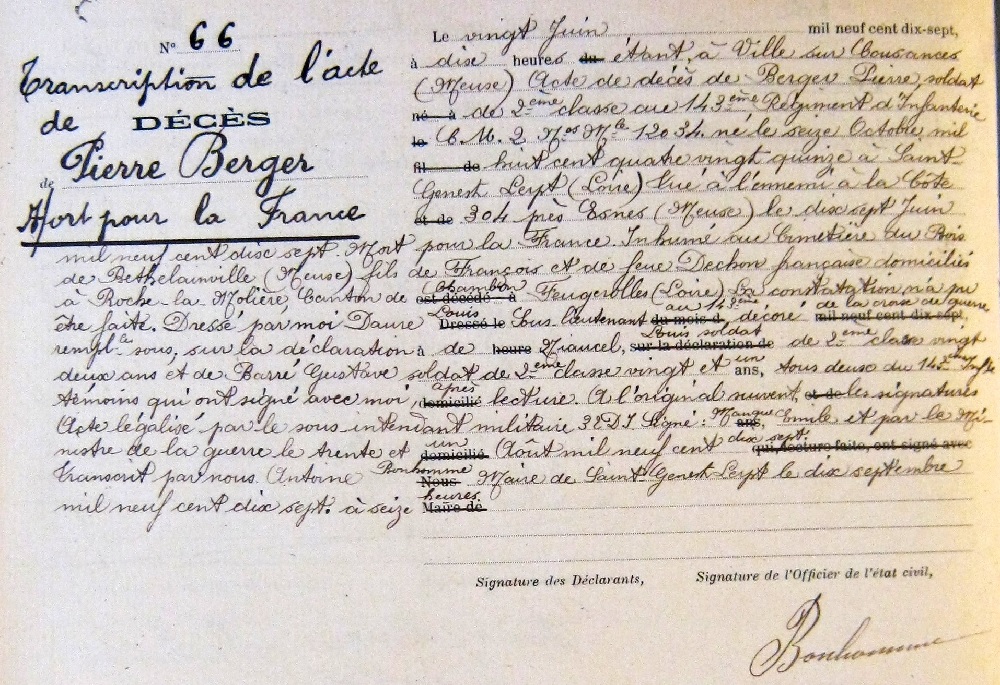 N° 66
Transcription de l'acte
de DÉCÈS
de Pierre Berger
Mort pour la France
Le vingt Juin mil neuf cent dix-sept,
à dix heures du étant, à Ville sur Cousances
(Meuse) Acte de décès de Berger Pierre, soldat
né à de 2ème classe au 143ème Régiment d'Infanterie
le C. M. 2 Nos Mle 12034. né le seize Octobre mil
fil de huit cent quatre vingt quinze à Saint
Genest Lerpt (Loire) Tué à l'ennemi à la Côte
et de 304 près Esnes (Meuse) le dix sept Juin
mil neuf cent dix sept. Mort pour la France. Inhumé au Cimetière du Bois
de Béthelainville (Meuse) fils de François et de feue Dechon française domiciliés
à Roche-la-Molière, Canton de Chambon est décédé à Feugerolles (Loire) La constatation n'a pu
être faite. Dressé par moi Daure Louis Dressé le Sous lieutenant au 143ème du mois d décoré de la croix de guerre mil neuf cent dix-sept,
sous, sur la déclaration à de heure Mancel, Louis soldat sur la déclaration de de 2ème classe vingt
deux ans et de Barré Gustave soldat de 2ème classe vingt et un ans, tous deux du 143ème Inftie
témoins qui ont signé avec moi, après domicilié lecture. A l'original suivent, et de les signatures
Acte légalisé par le sous-intendant militaire 32 D I Signé: Manque ans, Emile et par le Mi-
nistre de la guerre le trente et un domicilié Août mil neuf cent dix sept. qui, lecture faite, ont signé avec
Transcrit par nous Antoine Bonhomme Nous Maire de Saint Genest Lerpt le dix septembre
mil neuf cent dix sept. à seize heures. Maire de
Signature des Déclarants, Signature de l'Officier de l'état civil,
Bonhomme